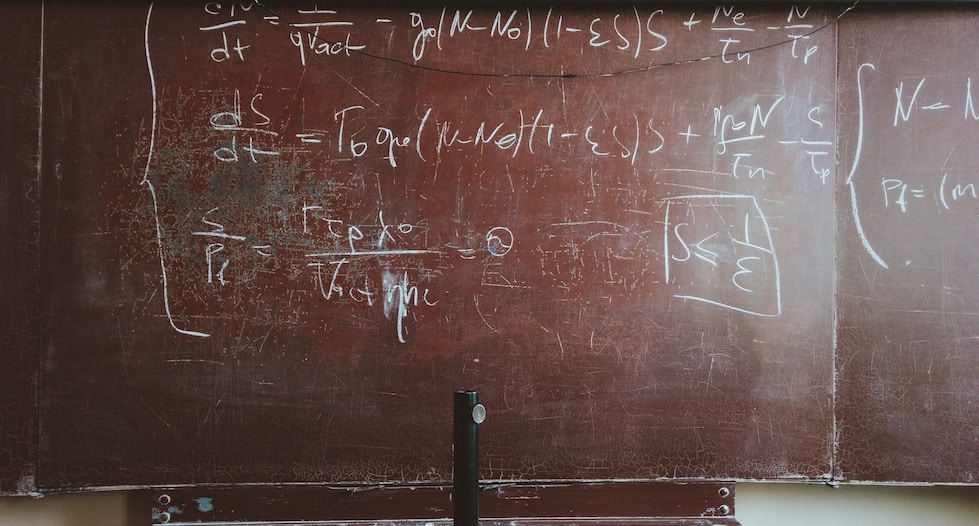 dN/dt = I/qVact - g₀(N-N₀)(1-εS)S + Ne/τn - N/τp
dS/dt = Γ₀g₀(N-N₀)(1-εS)S + N/τn - S/τp
S/Pf = Γτpλ₀/Vact ηhc = ϑ
S ≤ 1/ε
N -
Pf = (m